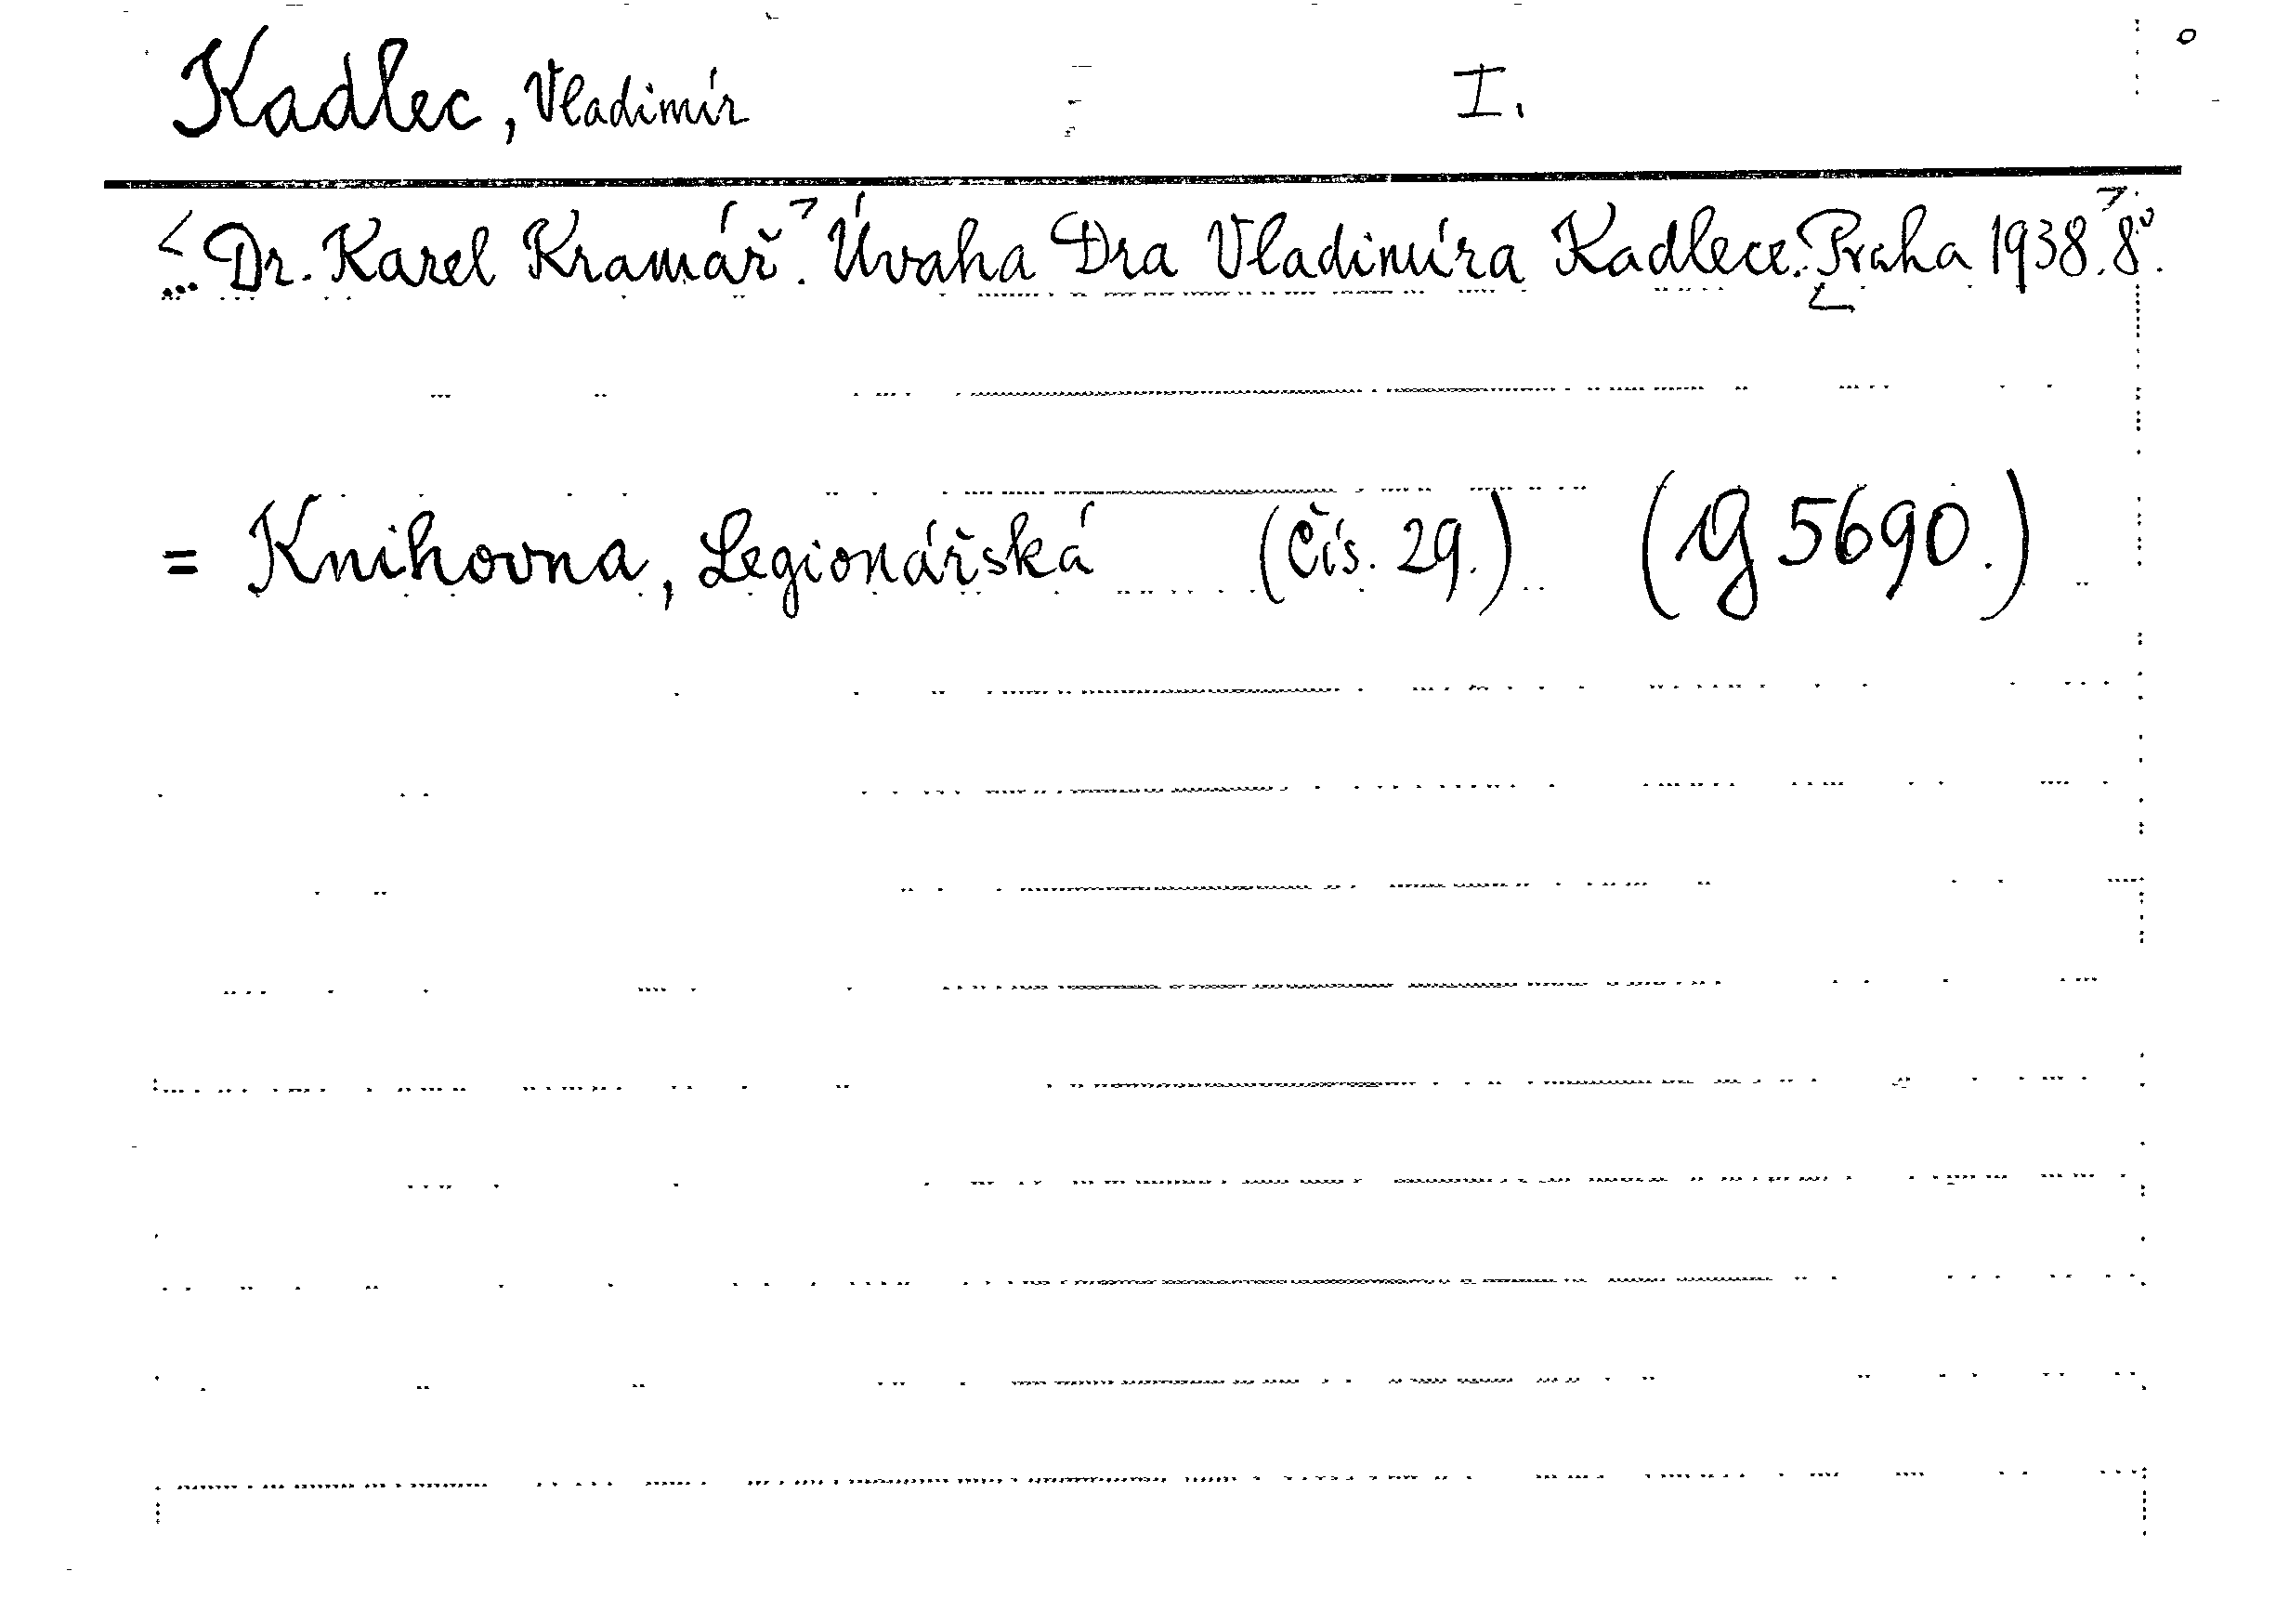 Kadlec, Vladimír I.
... Dr. Karel Kramář. Úvaha Dra Vladimíra Kadlece. Praha 1938. 8°.
= Knihovna, Legionářská (Čís. 29.) (G 5690.)